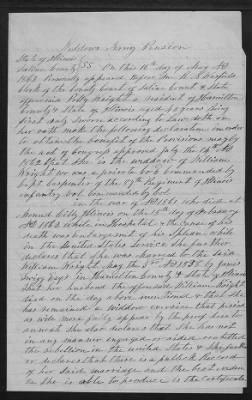 Widows Army Pension
State of Illinois
Saline County SS On this 16th day of May AD
1863 Personally appeared before me
Clerk of the County Court of Saline County & State
aforesaid Polly Wright a resident of Hamilton
County & State of Illinois aged years being
first duly Sworn according to Law doth on
her oath make the following declaration in order
to obtain the benefit of the provisions made by
the act of Congress approved July the 14th AD
1862 that She is the widow of William
Wright who was a private in Co commanded by
Capt Carpenter of the Regiment of Illinois
infantry vol commanded by Col
in the war of AD 1861 who died at
Mound City Illinois on the 15th day of
AD 1862 while in hospital & the cause of his
death was enlargement of his Spleen while
in the United States Service She further
declares that She was married to the said
William Wright May the AD by
in Hamilton County & State of Illinois
that her husband the aforesaid William Wright
died on the day above mentioned & that she
has remained a widow ever since that period
as will more fully appear by the proof hereto
annexed She also declares that She has not
in any manner engaged or aided or abetted
the rebellion in the united States &
declares that there is a publick Record
of her Said marriage and the best evidence
She is able to produce is the certificate